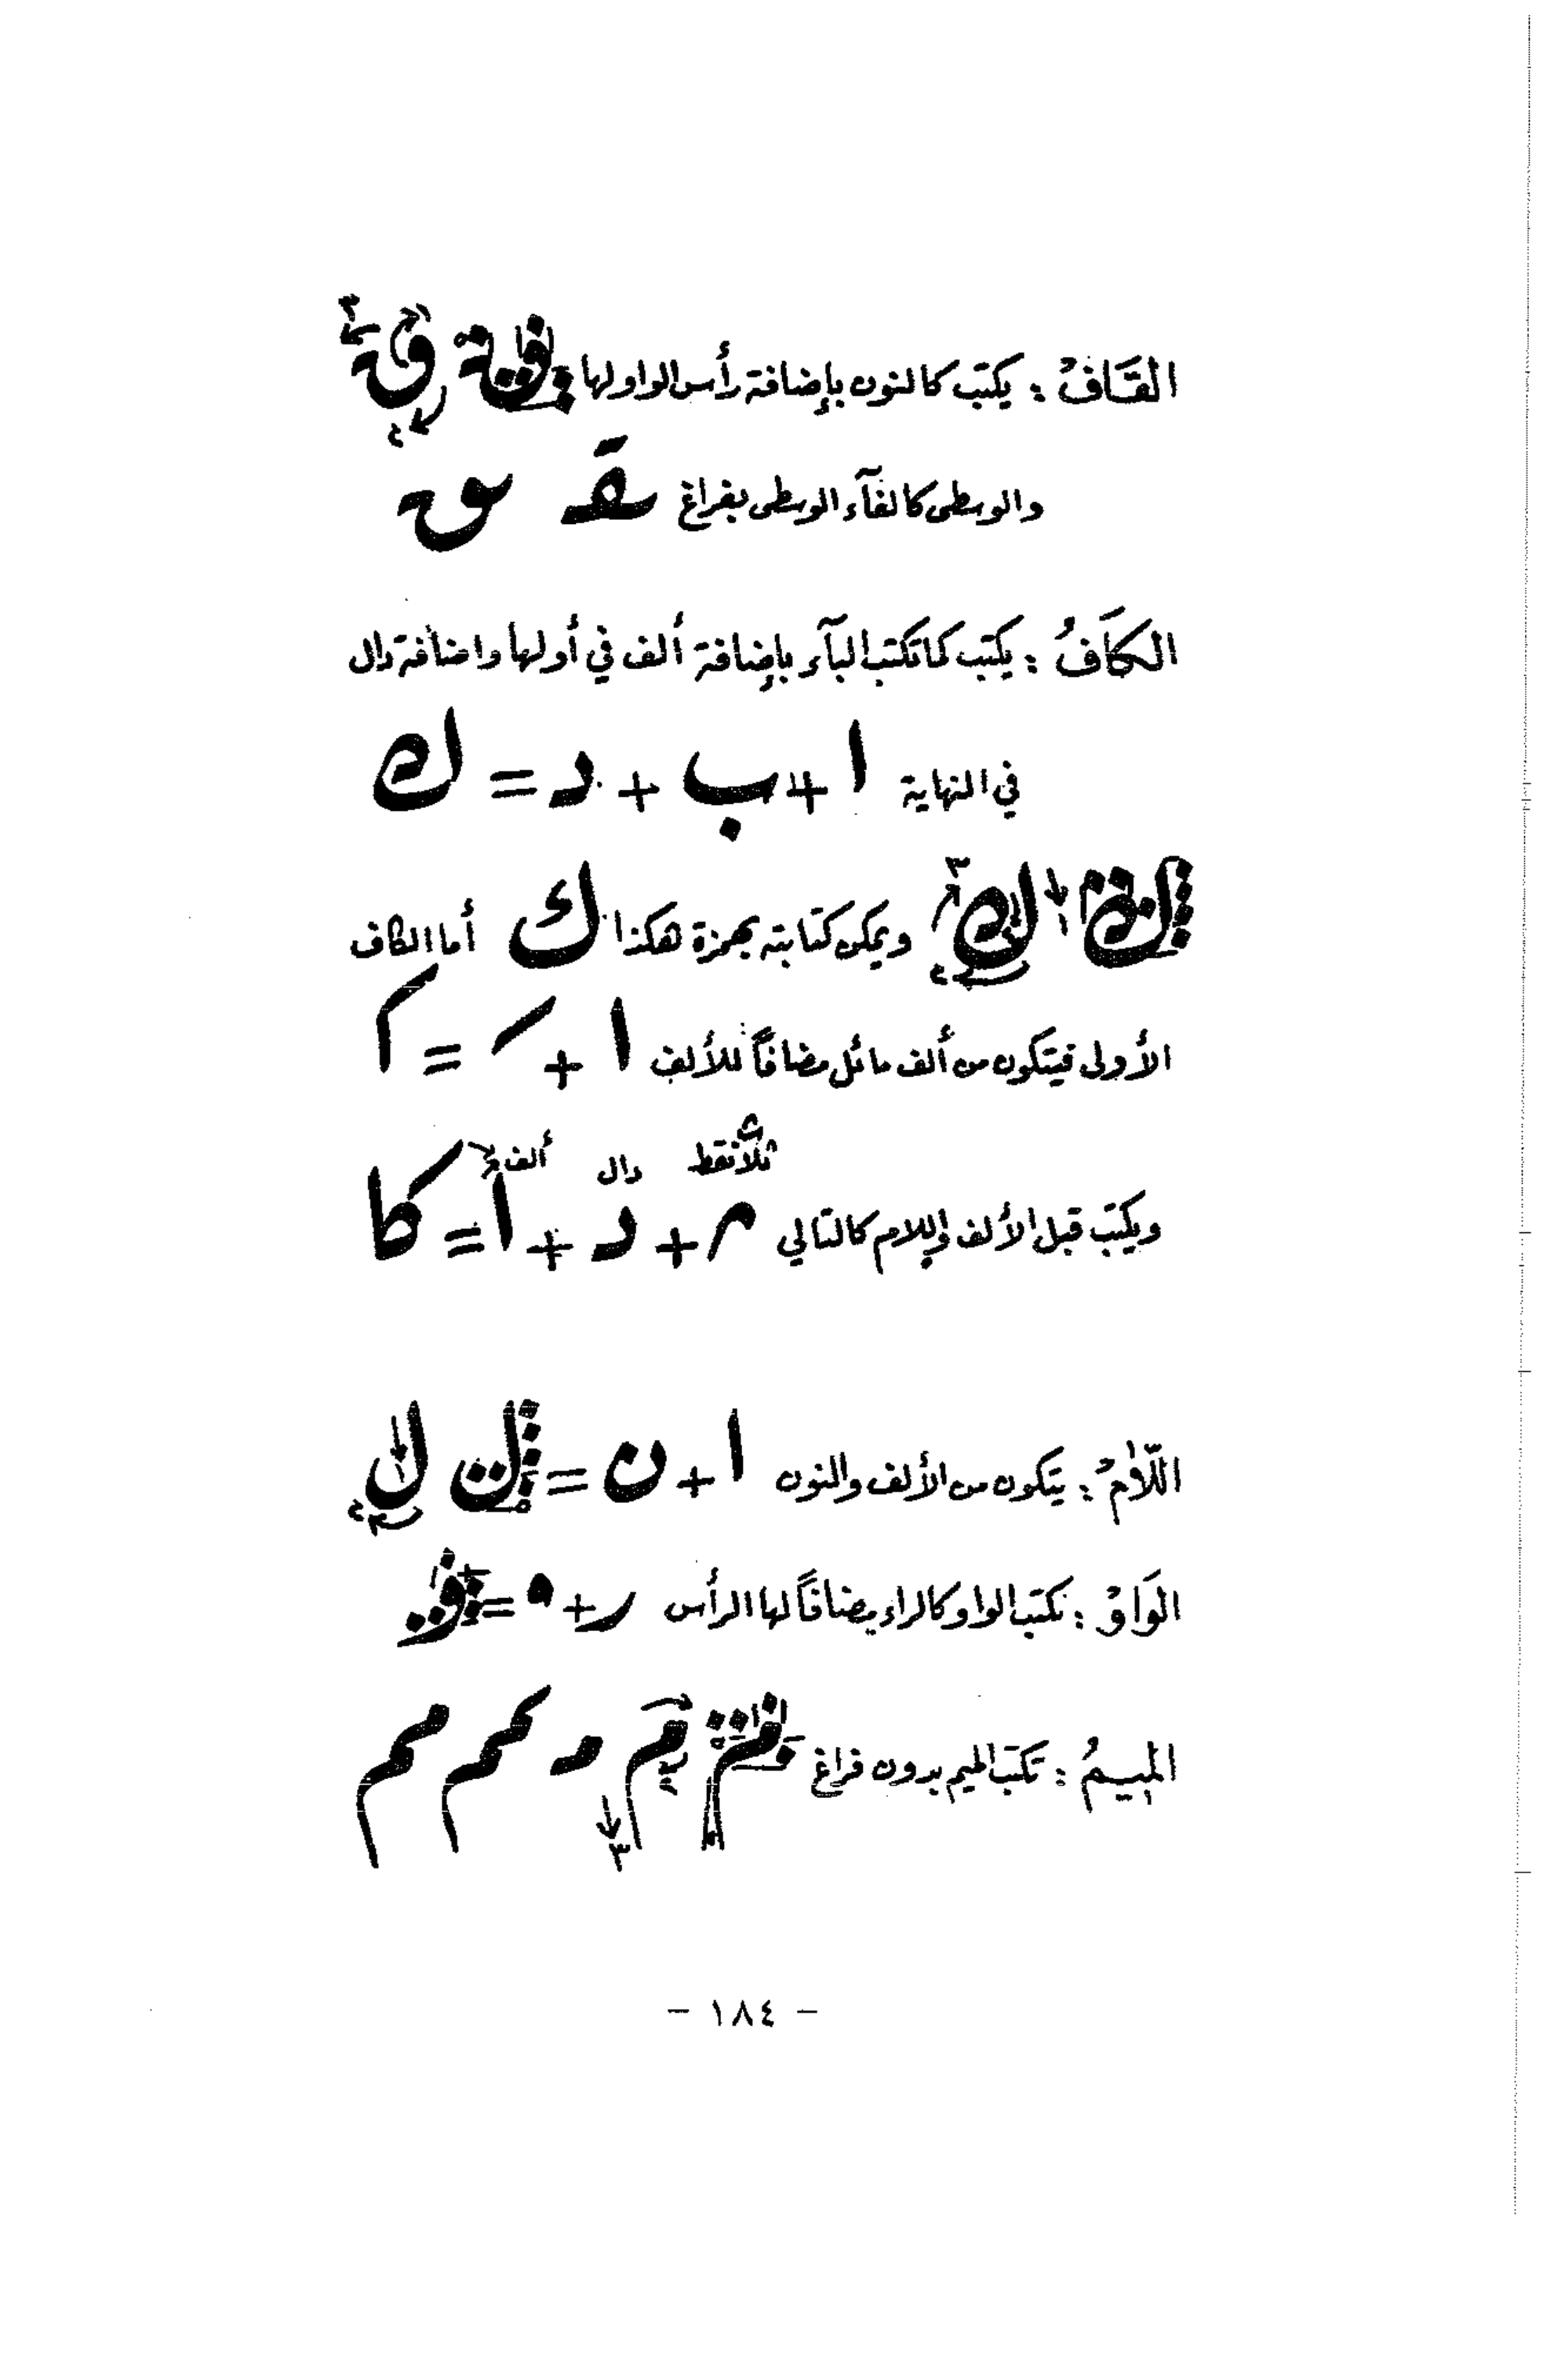 القَافْ : يكتب كالنون بإضافة رأس الواو لها ق ق
والوسطى كالفآء الوسطى بفراغ ـقـ ـق
الكَافُ : يكتب كما تكتب البآء بإضافة ألف في أولها واضافة دال
في النهاية ا + ب + د = ك
ك ك ويمكن كتابته بهمزة هكذا ك أما الكاف
الأولى فيتكون من ألف مائل مضافاً للألف ا + =
ثلاث نقط دال ألف
ويكتب قبل الألف واللام كالتالي + د + ا = كا
اللّامْ : يتكون من الألف والنون ا + ن = ل ل
الوَاوْ : نكتب الواو كالراء مضافاً لها الرأس ر + = و
الميـمُ : تكتب الميم بدون فراغ م م
- ١٨٤ -